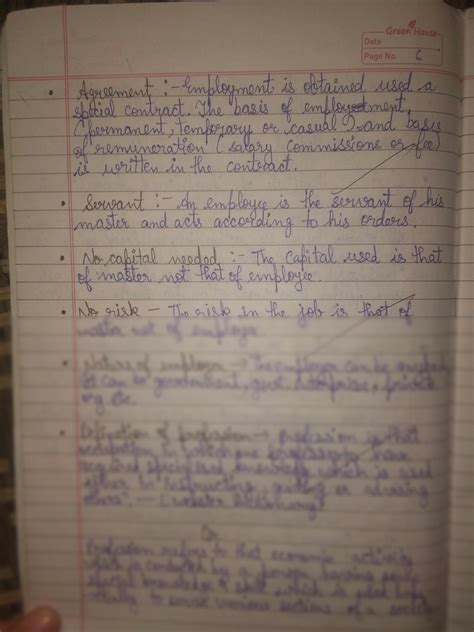 Green House
Date
Page No. 6
• Agreement :- Employment is obtained used a
special contract. The basis of employement,
(permanent, temporary or casual) and basis
of remuneration (salary commissions or fee)
is written in the contract.
• Servant :- An employee is the servant of his
master and acts according to his orders.
• No capital needed :- The capital used is that
of master not that of employee.
• No risk - The risk in the job is that of
master not of
• Nature of employer → The employer can be
It can be government, govt. enterprise, private
org etc.
• Definition of profession → profession is that
occupation in which one professes to have
acquired specialised knowledge which is used
either in instructing, guiding or advising
others". -
Or
Profession refers to that economic activity
which is conducted by a person having some
special knowledge & skill which is used
to various sections of a